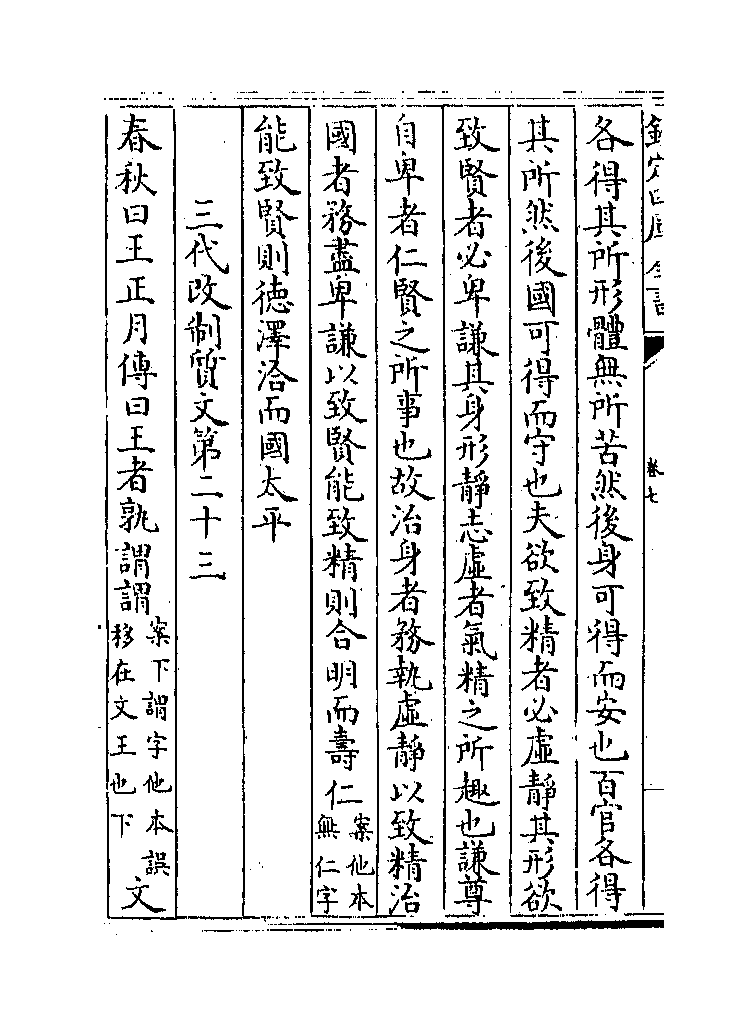 欽定四庫全書
卷七
各得其所形體無所苦然後身可得而安也百官各得
其所然後國可得而守也夫欲致精者必虛靜其形欲
致賢者必卑謙其身形靜志虛者氣精之所趣也謙尊
自卑者仁賢之所事也故治身者務執虛靜以致精治
國者務盡卑謙以致賢能致精則合明而壽仁案他本無仁字
能致賢則德澤洽而國太平
三代改制質文第二十三
春秋曰王正月傳曰王者孰謂謂案下謂字他本誤移在文王也下文